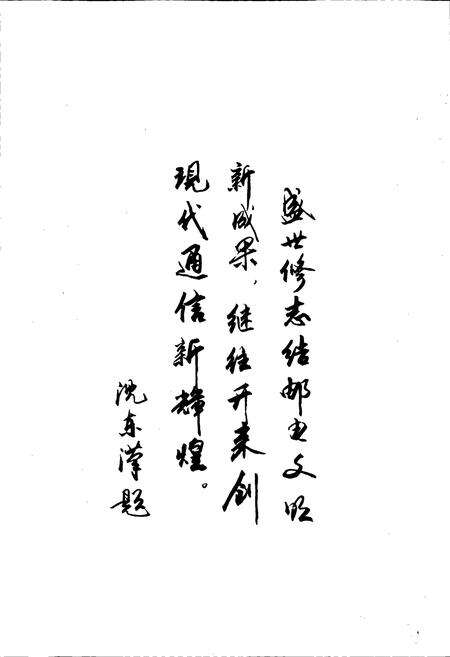 盛世修志结邮电文明
新成果，继往开来创
现代通信新辉煌。
沈东汉题